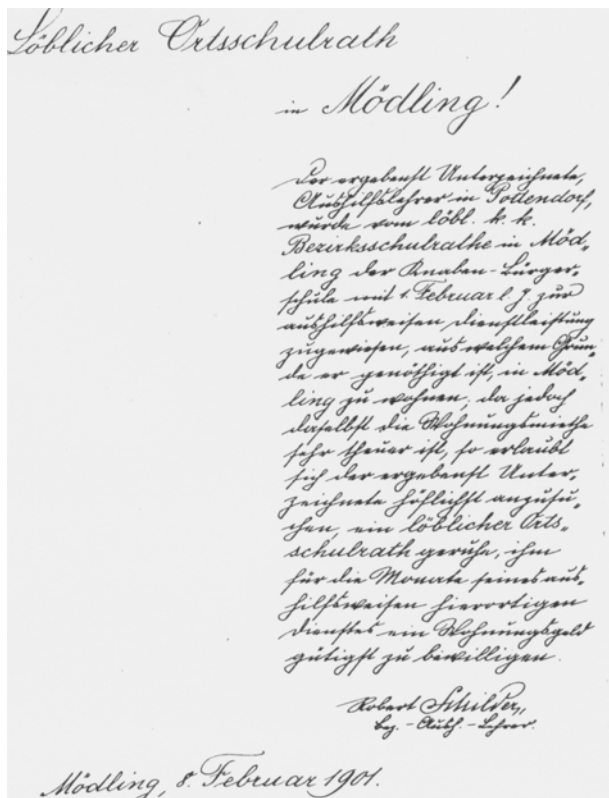 Löblicher Ortsschulrath
in Mödling!
Der ergebenst Unterzeichnete,
Aushilfslehrer in Pottendorf,
wurde vom löbl. k. k.
Bezirksschulrathe in Möd-
ling der Knaben-Bürger-
schule mit 1. Februar l. J. zur
aushilfsweisen Dienstleistung
zugewiesen, aus welchem Grun-
de er genöthigt ist, in Möd-
ling zu wohnen; da jedoch
daselbst die Wohnungsmiethe
sehr theuer ist, so erlaubt
sich der ergebenst Unter-
zeichnete höflichst anzusu-
chen, ein löblicher Orts-
schulrath geruhe, ihm
für die Monate seines aus-
hilfsweisen hierortigen
Dienstes ein Wohnungsgeld
gütigst zu bewilligen.
Robert Schilder,
Bez.-Aush.-Lehrer.
Mödling, 8. Februar 1901.